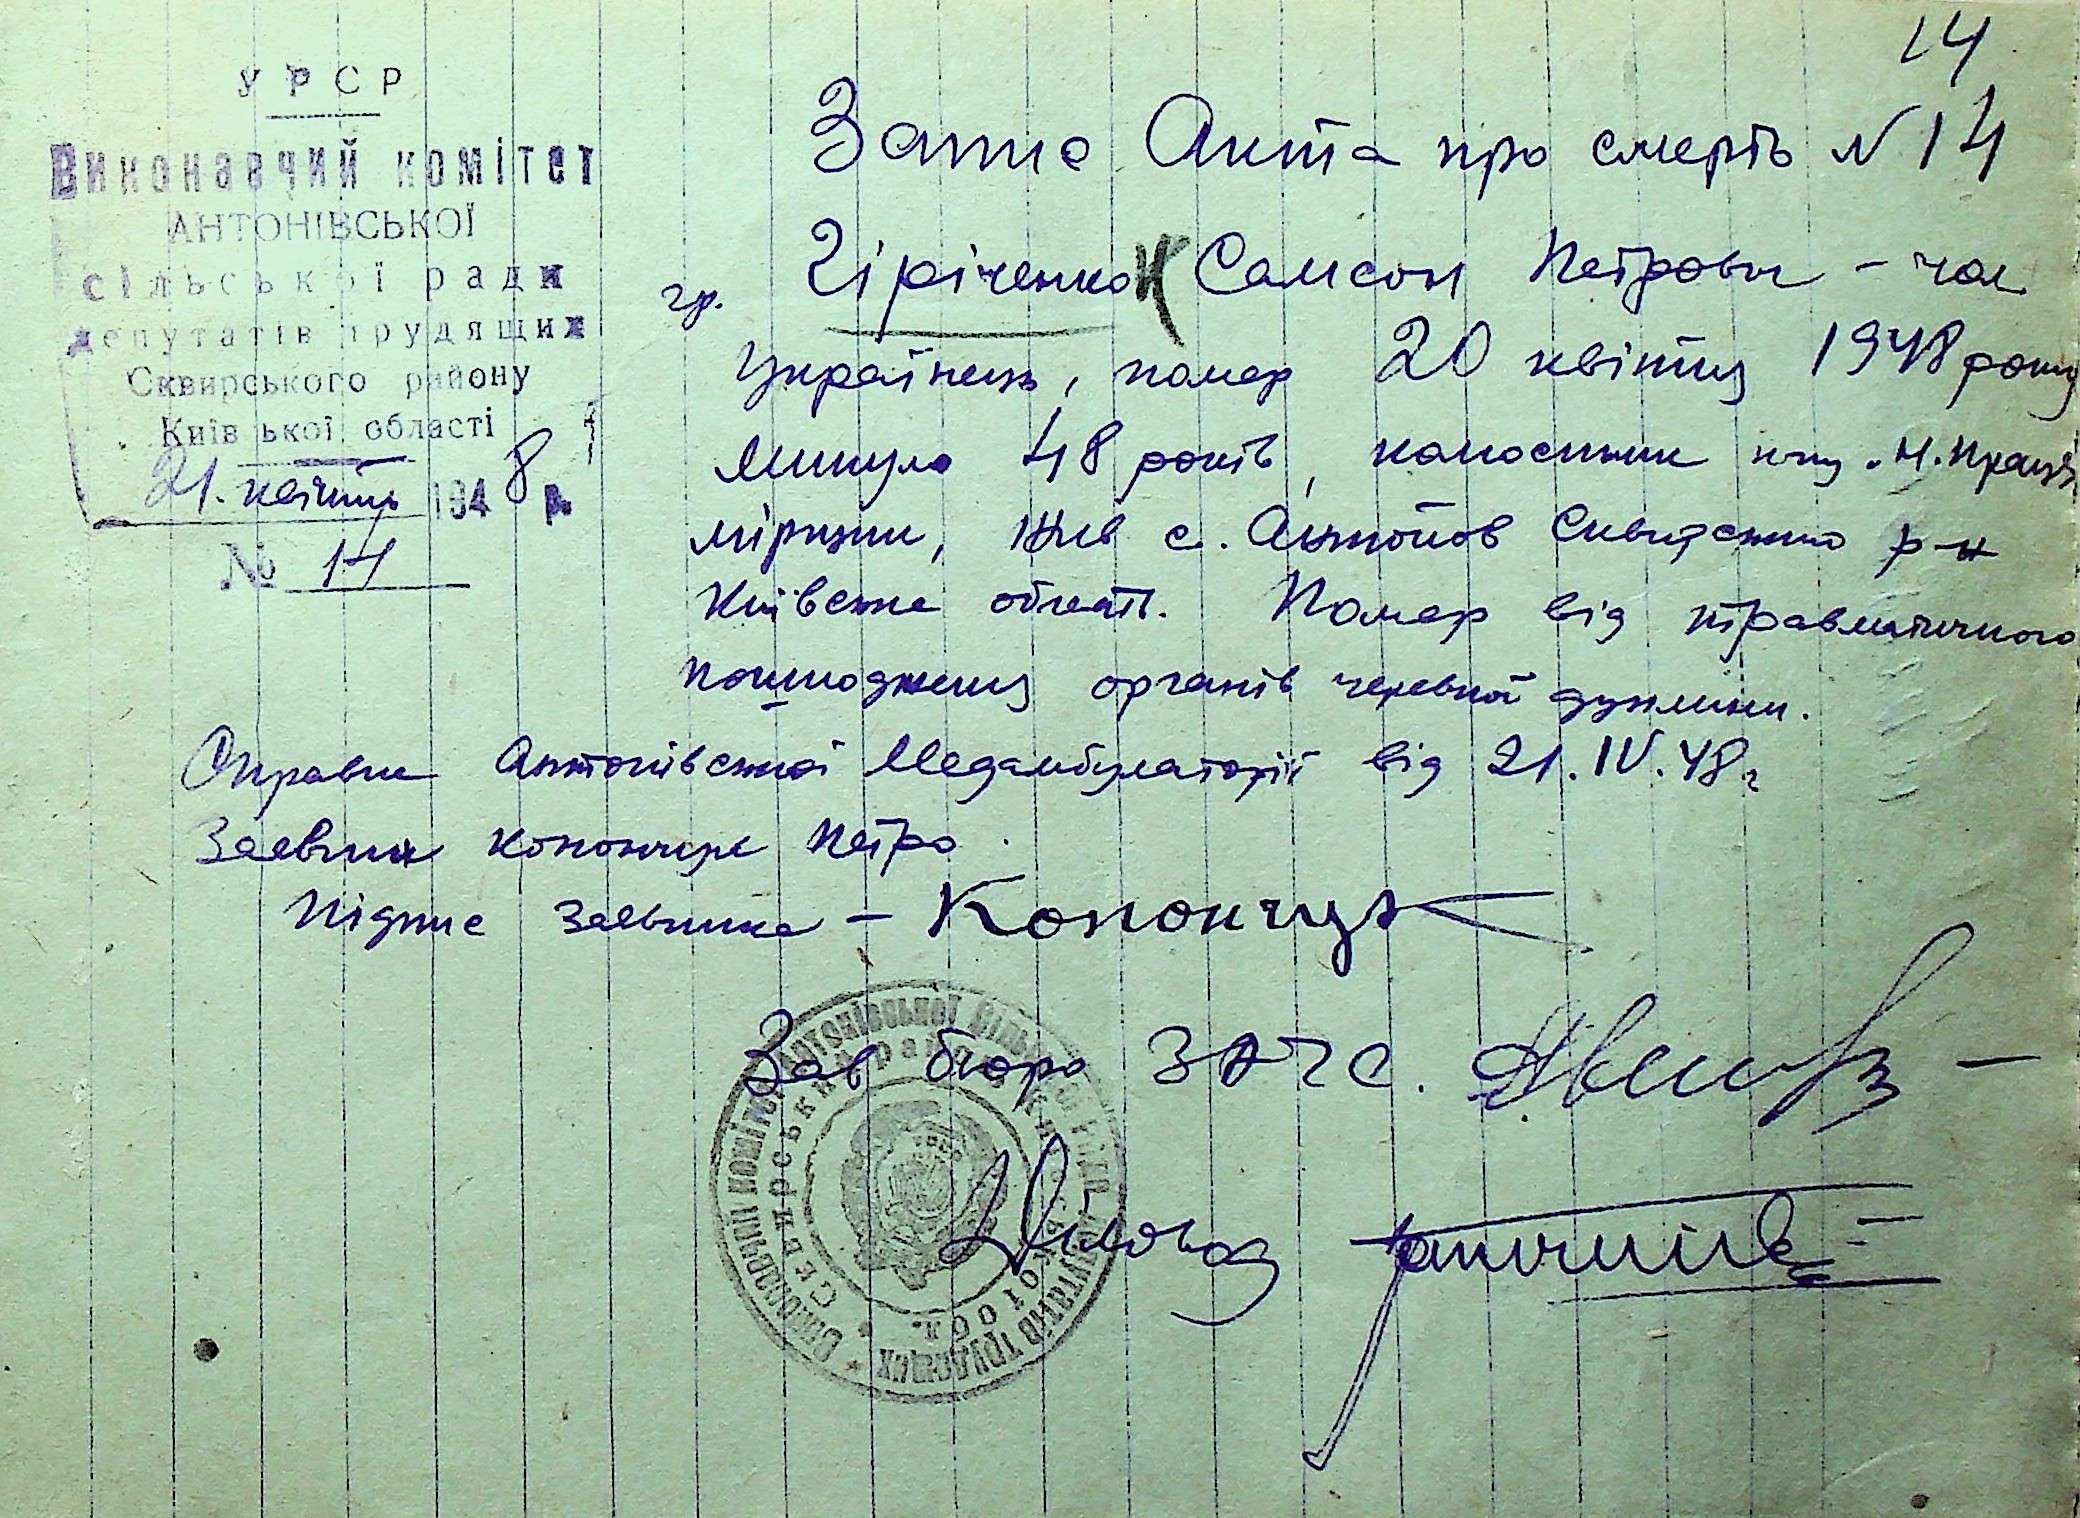 14
УРСР
Виконавчий комітет
АНТОНІВСЬКОЇ
сільської ради
депутатів трудящих
Сквирського району
Київ ької області
21. квітня 1948 р.
№ 14
Запис Акта про смерть N 14
гр. Чіріченко К Самсон Петрович - чол
Українець, помер 20 квітня 1948 року
минуло 48 років, колгоспник
жив с. Антонов Сквирського р-н
Київська область. Помер від травматичного
пошкодження органів черевної
Справка Антонівської Медамбулаторії від 21.IV.48 г
Заявник Конончук Петро.
Підпис заявника - Конончук
Зав бюро ЗАГС.
Виконавчий комітет Антонівської сільської ради депутатів трудящих
Сквирський район Київської обл.